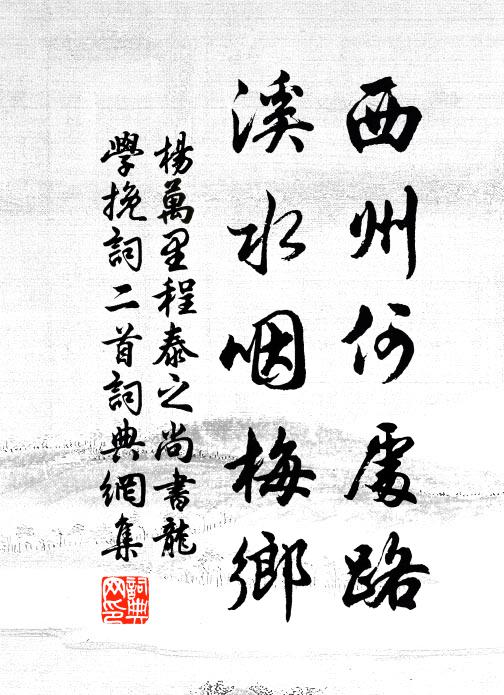 西州何處路
溪水咽梅鄉
楊萬里程泰之尚書龍
學挽詞二首詞典網集
詞典
網印